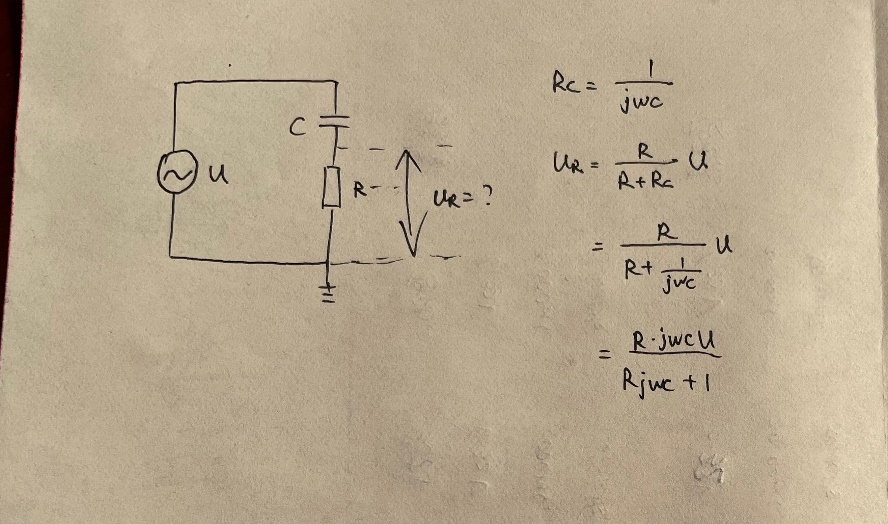 C
U
R
UR = ?
Rc = 1/jwc
UR = R/(R+Rc) U
= R/(R+ 1/jwc) U
= R·jwcU/(Rjwc +1)